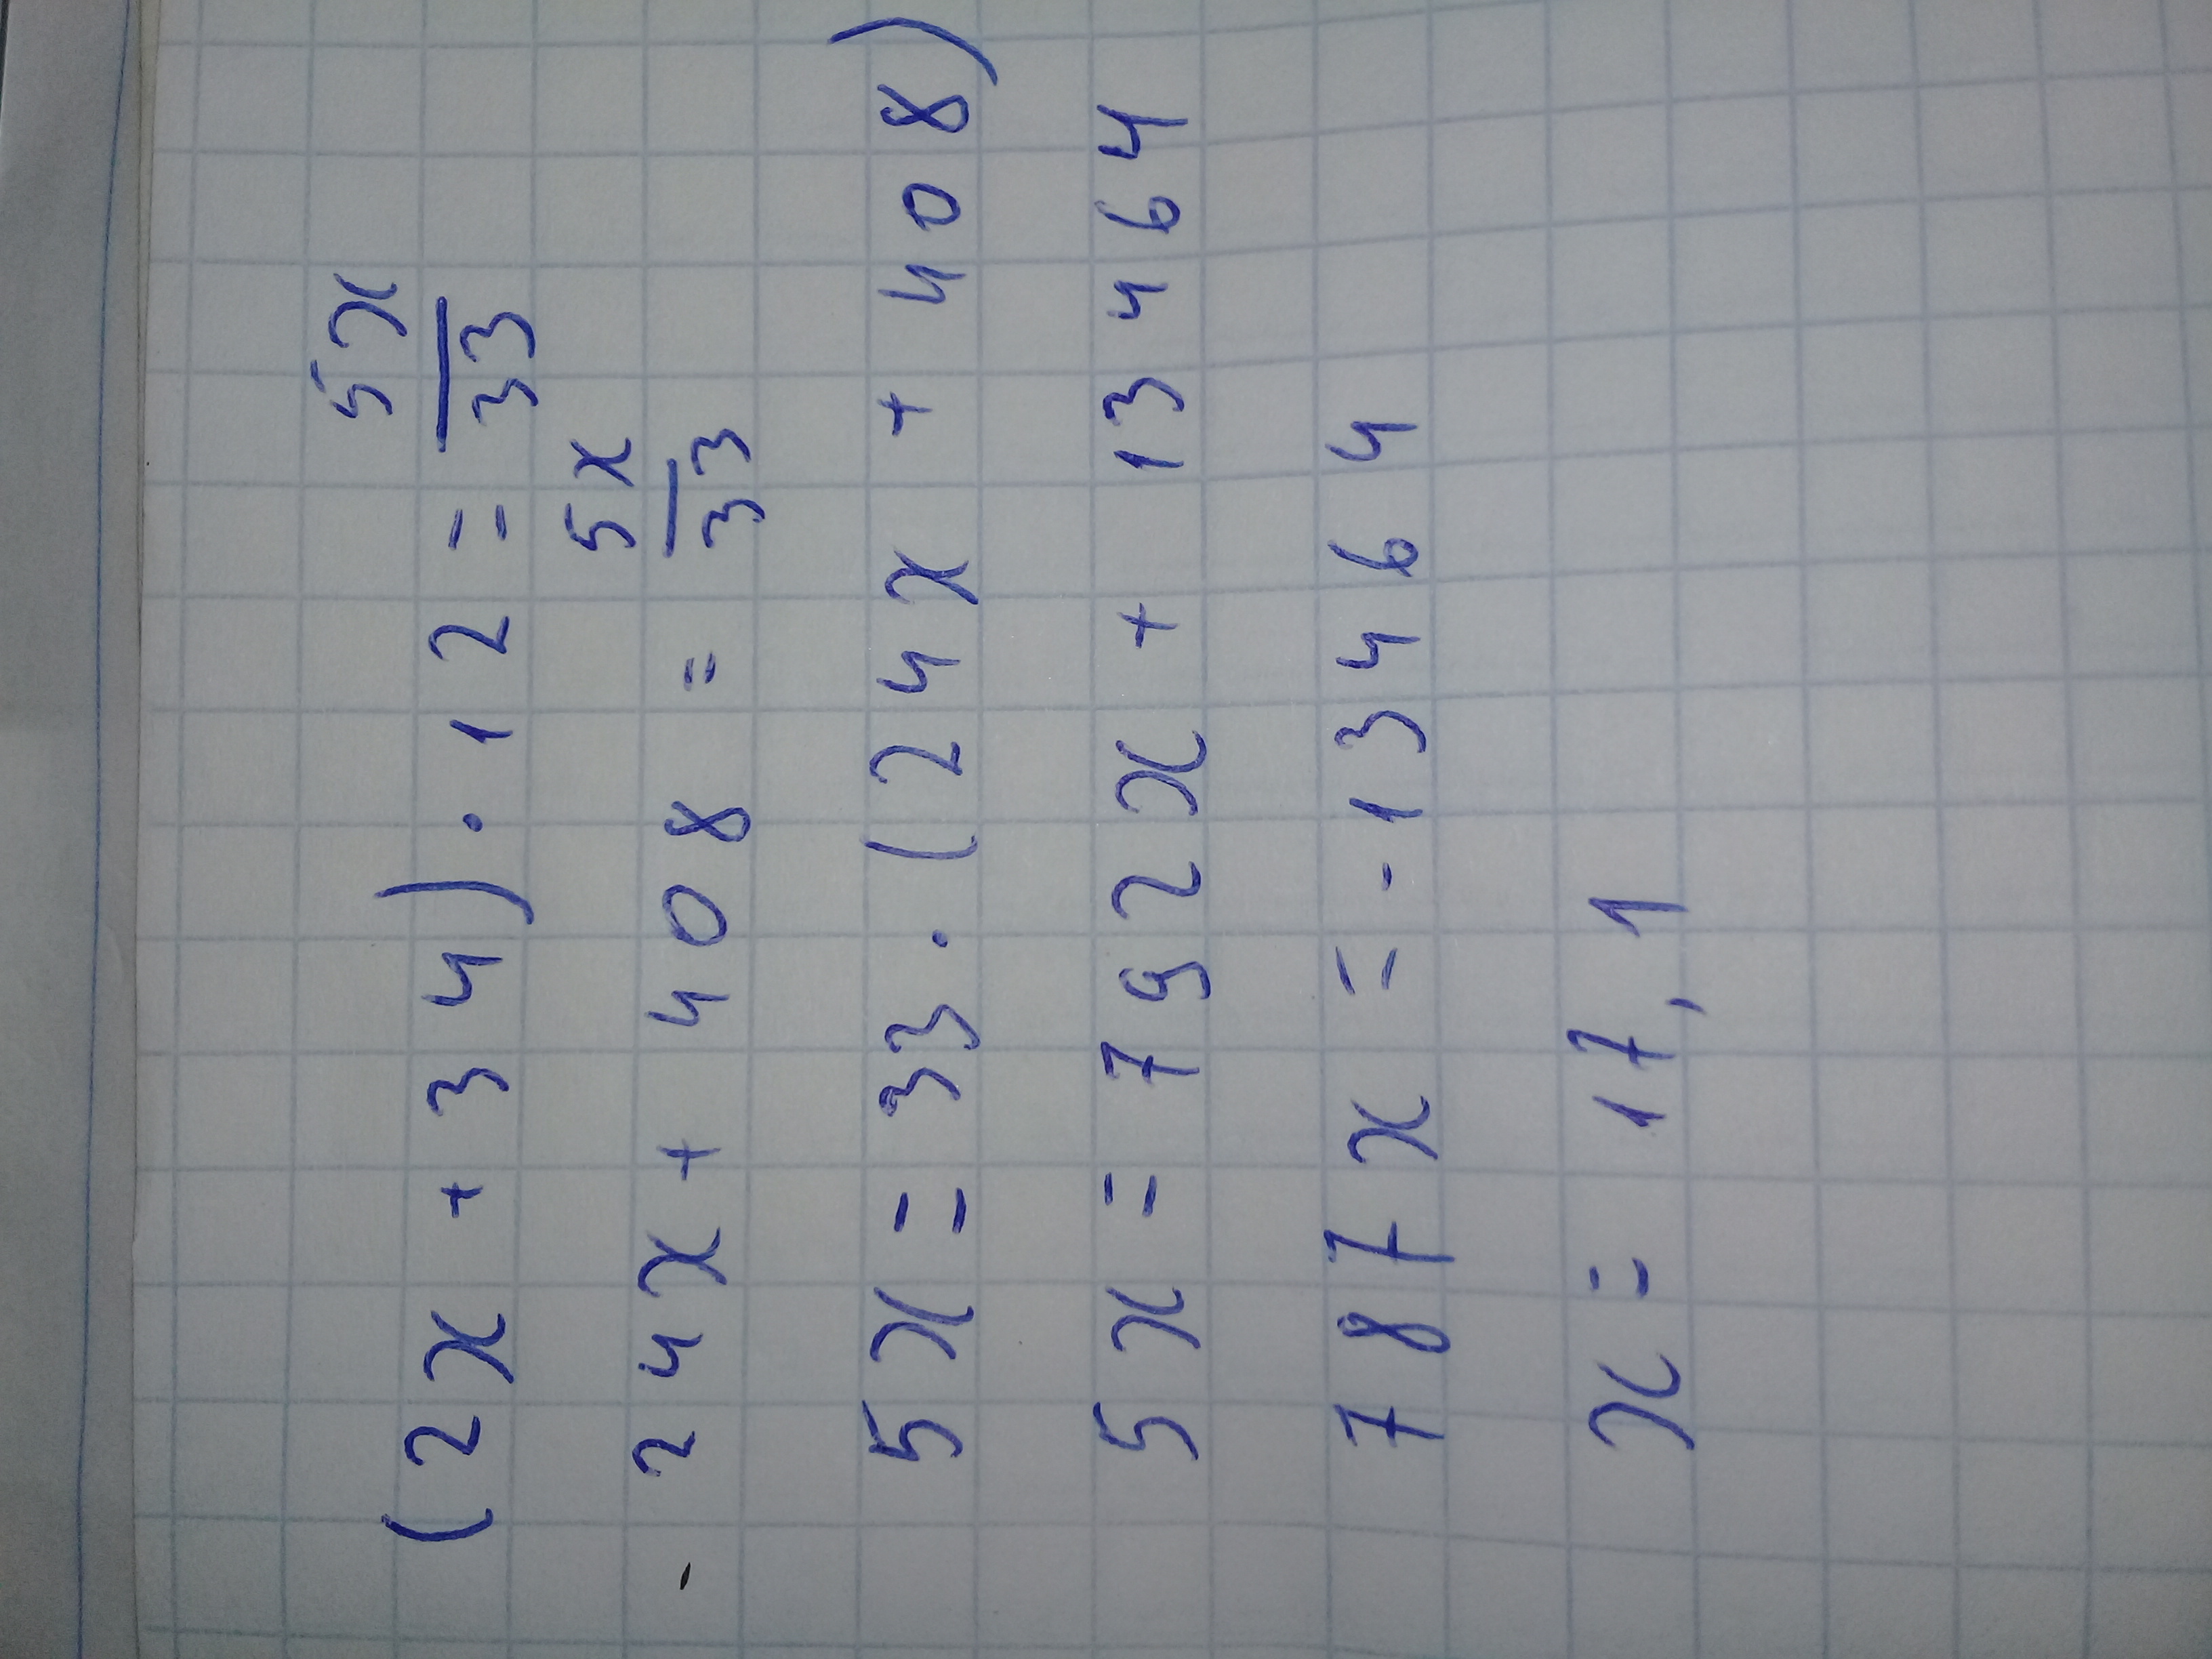 (2x + 34) · 12 = 5x/33
- 24x + 408 = 5x/33
5x = 33 · (24x + 408)
5x = 792x + 13464
787x = - 13464
x = 17,1